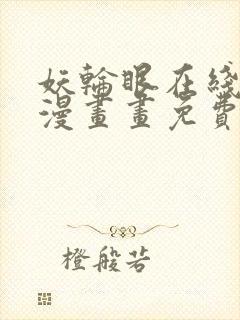 妖輪眼在綫
漫畫畫免費
橙般若